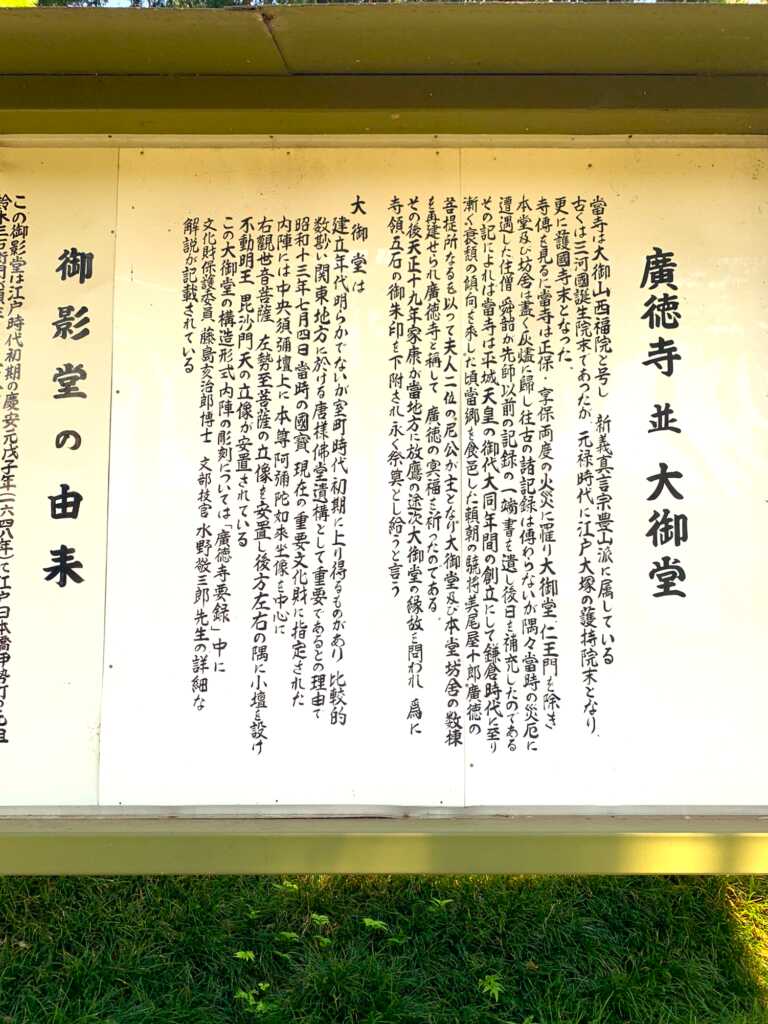 廣徳寺 並 大御堂
當寺は大御山西福院と号し 新義真言宗豊山派に属している
古くは三河國誕生院末であったが 元禄時代に江戸大塚の護持院末となり
更に護國寺末となった
寺傳を見るに當寺は正保 享保両度の火災に罹り大御堂 仁王門を除き
本堂及び坊舎は盡く灰燼に歸し往古の諸記録は傳わらないが隅々當時の災厄に
遭遇した住僧 舜翁が先師以前の記録の一端を書き遺し後日を補充したのである
その記によれば當寺は平城天皇の御代大同年間の創立にして鎌倉時代に至り
漸く衰頽の傾向を来した頃當郷を食邑した頼朝の驍将美尾屋十郎廣徳の
菩提所なるを以って夫人二位の尼公が主となり大御堂及び本堂坊舎の数棟
を再建せられ廣徳寺と稱して 廣徳の冥福を祈ったのである
その後天正十九年家康が當地方に放鷹の途次大御堂の縁故を問われ 為に
寺領五石の御朱印を下附され永く祭奠とし給うと言う
大御堂は
建立年代明らかでないが室町時代初期に上り得るものがあり 比較的
数尠い関東地方に於ける唐様佛堂遺構として重要であるとの理由で
昭和十三年七月四日當時の國寳、現在の重要文化財に指定された
内陣には中央須彌壇上に本尊阿彌陀如来坐像を中心に
右觀世音菩薩 左勢至菩薩の立像を安置し後方左右の隅に小壇を設け
不動明王 毘沙門天の立像が安置されている
この大御堂の構造形式内陣の彫刻については「廣徳寺要録」中に
文化財保護委員 藤島亥治郎博士 文部技官 水野敬三郎先生の詳細な
解説が記載されている
御影堂の由来
この御影堂は江戸時代初期の慶安元戊子年(一六四八年)に江戸日本橋伊勢町の